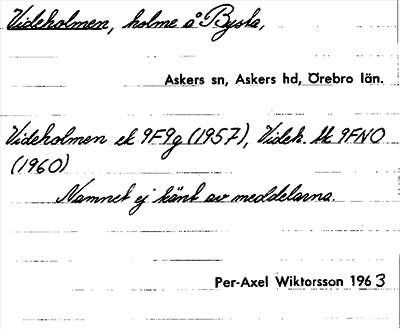 Videholmen, holme å Bysta,
Askers sn, Askers hd, Örebro län.
Videholmen ek 9F9g (1957), Videh. tk 9FNO
(1960)
Namnet ej känt av meddelarna.
Per-Axel Wiktorsson 1963